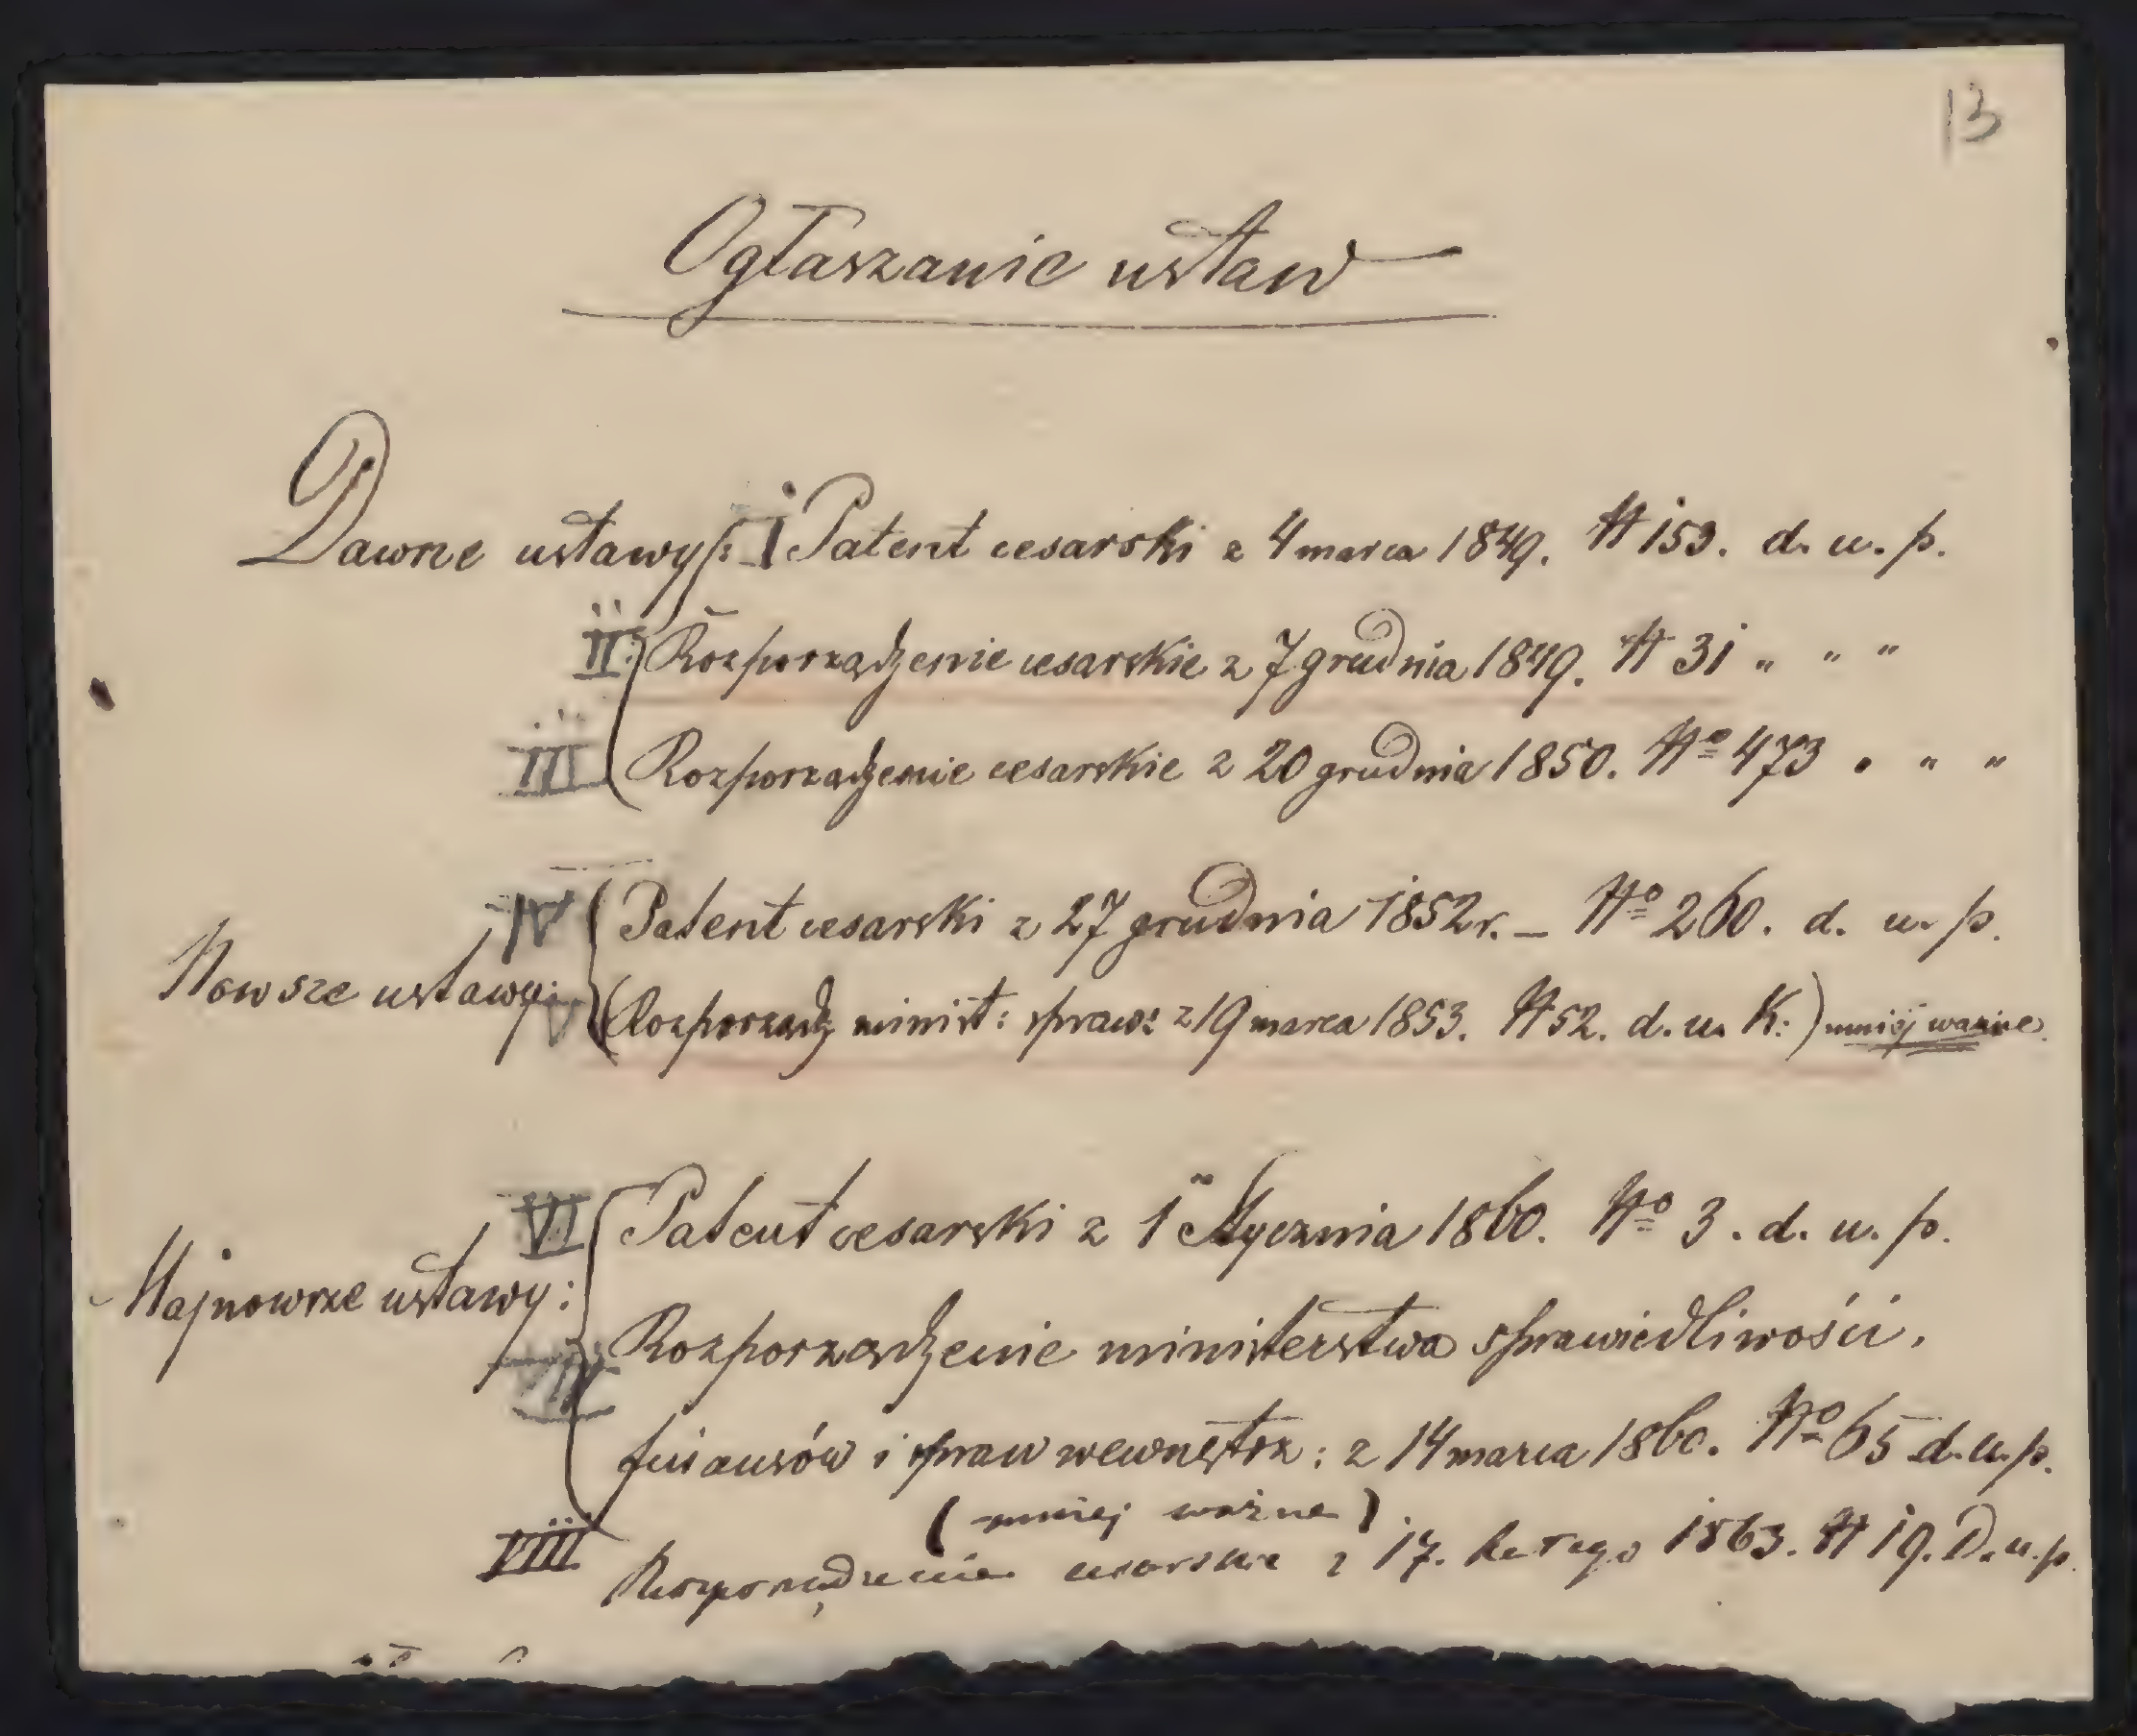 13
Ogłaszanie ustaw
Dawne ustawy: I Patent cesarski z 4 marca 1849. N 153. d. u. p.
II. Rozporządzenie cesarskie z 7 grudnia 1849. N 31 " " "
III Rozporządzenie cesarskie z 20 grudnia 1850. Nº 473 " " "
IV Patent cesarski z 27 grudnia 1852r. – Nº 260. d. u. p.
Nowsze ustawy: V (Rozporządz minist: spraw: z 19 marca 1853. N 52. d. u. K:) mniej ważne.
VI Patent cesarski z 1 Stycznia 1860. Nº 3. d. u. p.
Najnowsze ustawy:
VII Rozporządzenie ministerstwa sprawiedliwości,
finansów i spraw wewnętrz: z 14 marca 1860. Nº 65 d. u. p.
(mniej ważne)
VIII Rozporządzenie cesarskie z 17. Lutego 1863. N 19. D. u. p.